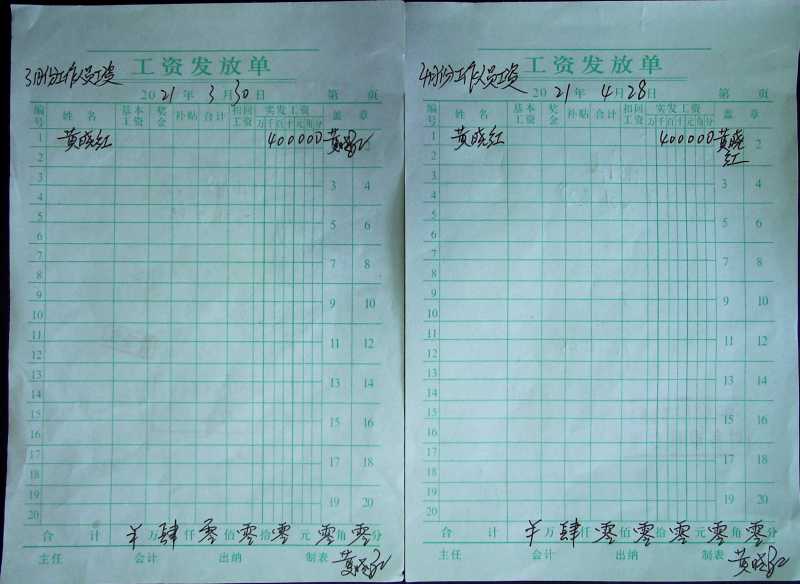 工资发放单
3月份工作人员工资
2021年3月30日 第 页
编号 姓名 基本工资 奖金 补贴 合计 扣回工资 实发工资 盖章
万千百十元角分
1 黄晓红 400000 黄晓红
2
3 4
3
4
5 5 6
6
7 7 8
8
9 9 10
10
11 11 12
12
13 13 14
14
15 15 16
16
17 17 18
18
19 19 20
20
合计 万肆仟零佰零拾零元零角零分
主任 会计 出纳 制表 黄晓红
工资发放单
4月份工作人员工资
2021年4月28日 第 页
编号 姓名 基本工资 奖金 补贴 合计 扣回工资 实发工资 盖章
万千百十元角分
1 黄晓红 400000 黄晓红 2
2
3 3 4
4
5 5 6
6
7 7 8
8
9 9 10
10
11 11 12
12
13 13 14
14
15 15 16
16
17 17 18
18
19 19 20
20
合计 万肆仟零佰零拾零元零角零分
主任 会计 出纳 制表 黄晓红